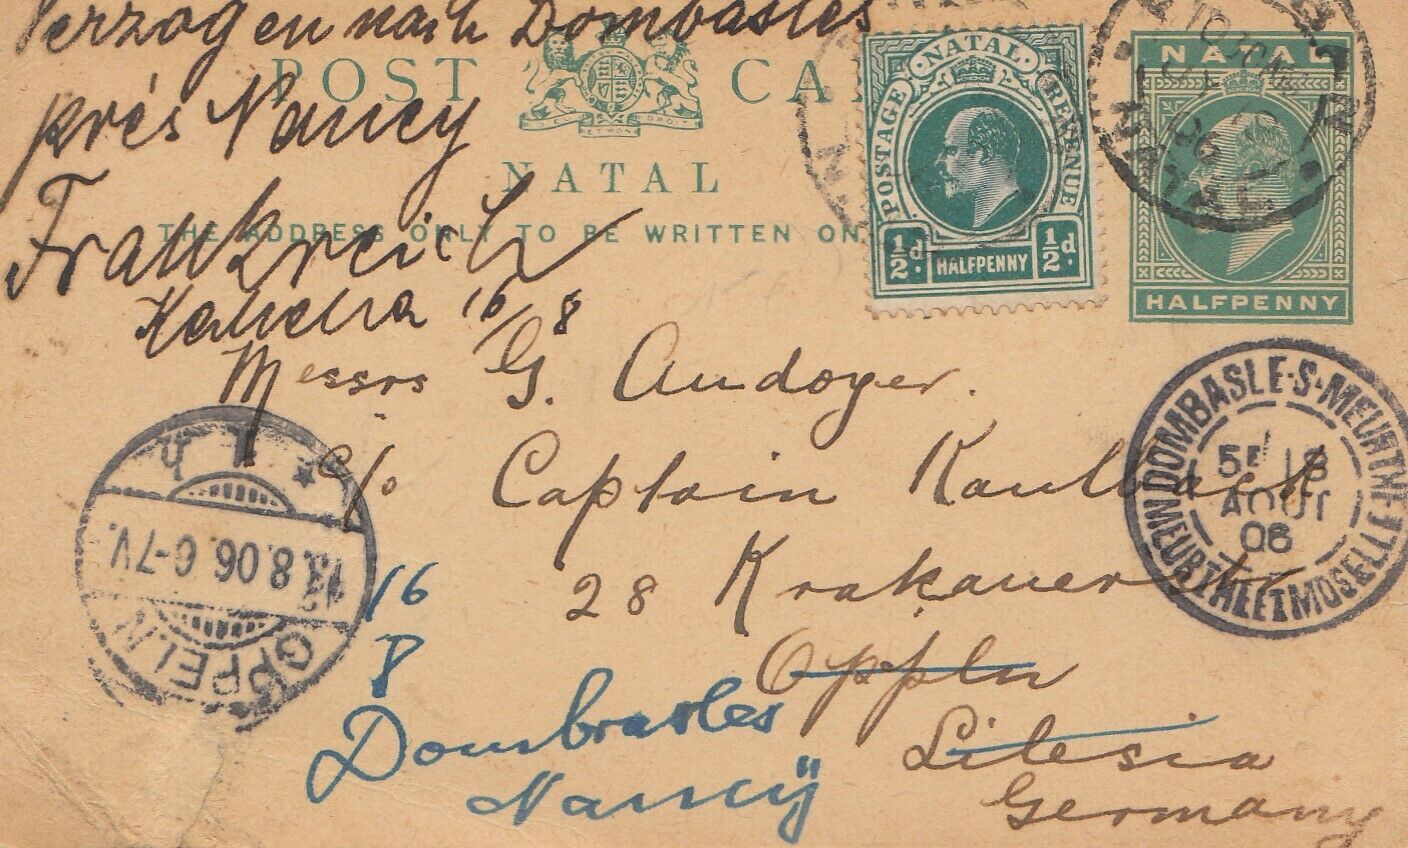 Verzogen nach Dombasles
près Nancy
Frankreich
16/8
POST CA
NATAL
THE ADDRESS ONLY TO BE WRITTEN ON
NATAL
POSTAGE
REVENUE
½d.
HALFPENNY
½d.
NATAL
HALFPENNY
DURBAN
NATAL
06
Messrs G. Andoyer.
c/o Captain Kaulbach
28 Krakauerstr
Oppeln
Silesia
Germany
16
8
Dombrasles
Nancÿ
OPPELN
13.8.06.6-7V.
* 1 h
DOMBASLE-S-MEURTHE
MEURTHE ET MOSELLE
5E 18
AOUT
06